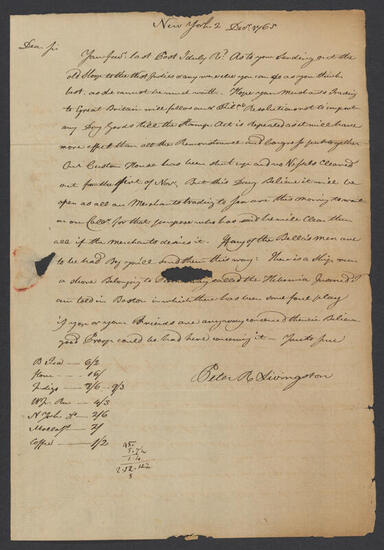 New York 2 Decr. 1765
Dear Sir
Your favr. last Post I duly Rd. As to your Sending out the
old Sloop to the West Indies any ways else you can do as you think
best, as she cannot be much worth. I hope your Merchants Trading
to Great Britain will follow our Resolutions not to import
any Dry Goods till the Stamp Act is repealed as it will have
more effect than all the Remonstrances and Congress put together
Our Custom House has been shut up and no Vessels Cleared
out from the first of Novr. But this day I believe it will be
open as all our Merchants trading to Sea are this morning to wait
on our Collr. for that purpose who has said he will Clear them
all if the Merchants desires it. If any of the Bellis men are
to be had by you'll send them this way. There is a Ship near
a shore Belonging to called the Hibernia Insured I
am told in Boston in which there has been some foul play
if you or your Friends are any way concerned therein I believe
good Proofs could be had here concerning it — Yours sure
Peter R Livingston
B Tea — 6/2
flour — 16/
Indigo — 7/6 - 9/3
W. I. Rum — 4/3
N York Do — 2/6
Molass — 2/
Coffee — 1/2